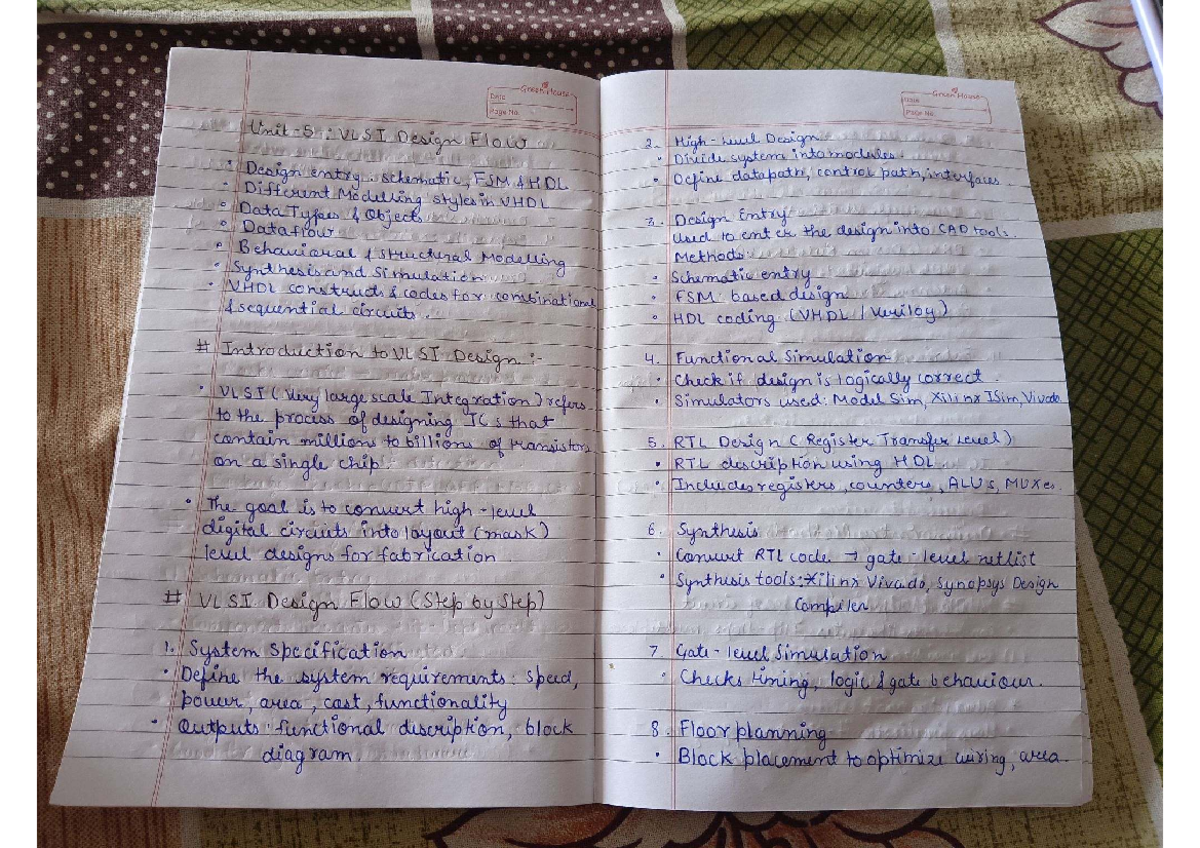 Green House
Date
Page No.
Unit : 5 : VLSI Design Flow
• Design entry : Schematic, FSM & HDL
• Different Modelling styles in VHDL
• Data Types & Objects
• Dataflow
• Behavioral & Structural Modelling
• Synthesis and Simulation
• VHDL constructs & codes for combinational
& sequential circuits.
# Introduction to VLSI Design :-
• VLSI (Very large scale Integration) refers
to the process of designing ICs that
contain millions to billions of transistors
on a single chip.
• The goal is to convert high-level
digital circuits into layout (mask)
level designs for fabrication
# VLSI Design Flow (Step by Step)
1. System Specification
• Define the system requirements : speed,
power, area, cost, functionality
• Outputs : functional discription, block
diagram.
Green House
Date
Page No.
2. High-level Design
• Divide system into modules.
• Define datapath, control path, interfaces.
3. Design Entry
Used to enter the design into CAD tools.
Methods:
• Schematic entry
• FSM based design
• HDL coding (VHDL / Verilog)
4. Functional Simulation
• Check if design is logically correct
• Simulators used: Model Sim, Xilinx ISim, Vivado
5. RTL Design (Register Transfer Level)
• RTL discription using HDL
• Includes registers, counters, ALUs, MUXes.
6. Synthesis
• Convert RTL code → gate-level netlist
• Synthesis tools: Xilinx Vivado, Synopsys Design
Compiler
7. Gate-level Simulation
• Checks timing, logic & gate behaviour.
8. Floor planning
• Block placement to optimize wiring, area.